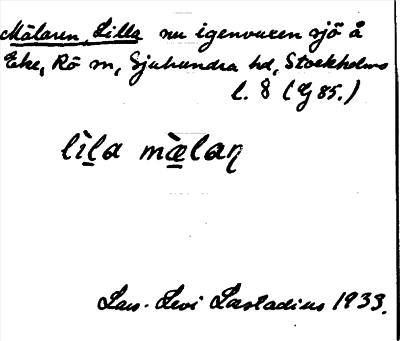 Mälaren, Lilla nu igenvuxen sjö å
Eke, Rö sn, Sjuhundra hd, Stockholms
l. 8 (G 85.)
lìl̲a mæ̲̀laṇ
Lars-Levi Læstadius 1933.